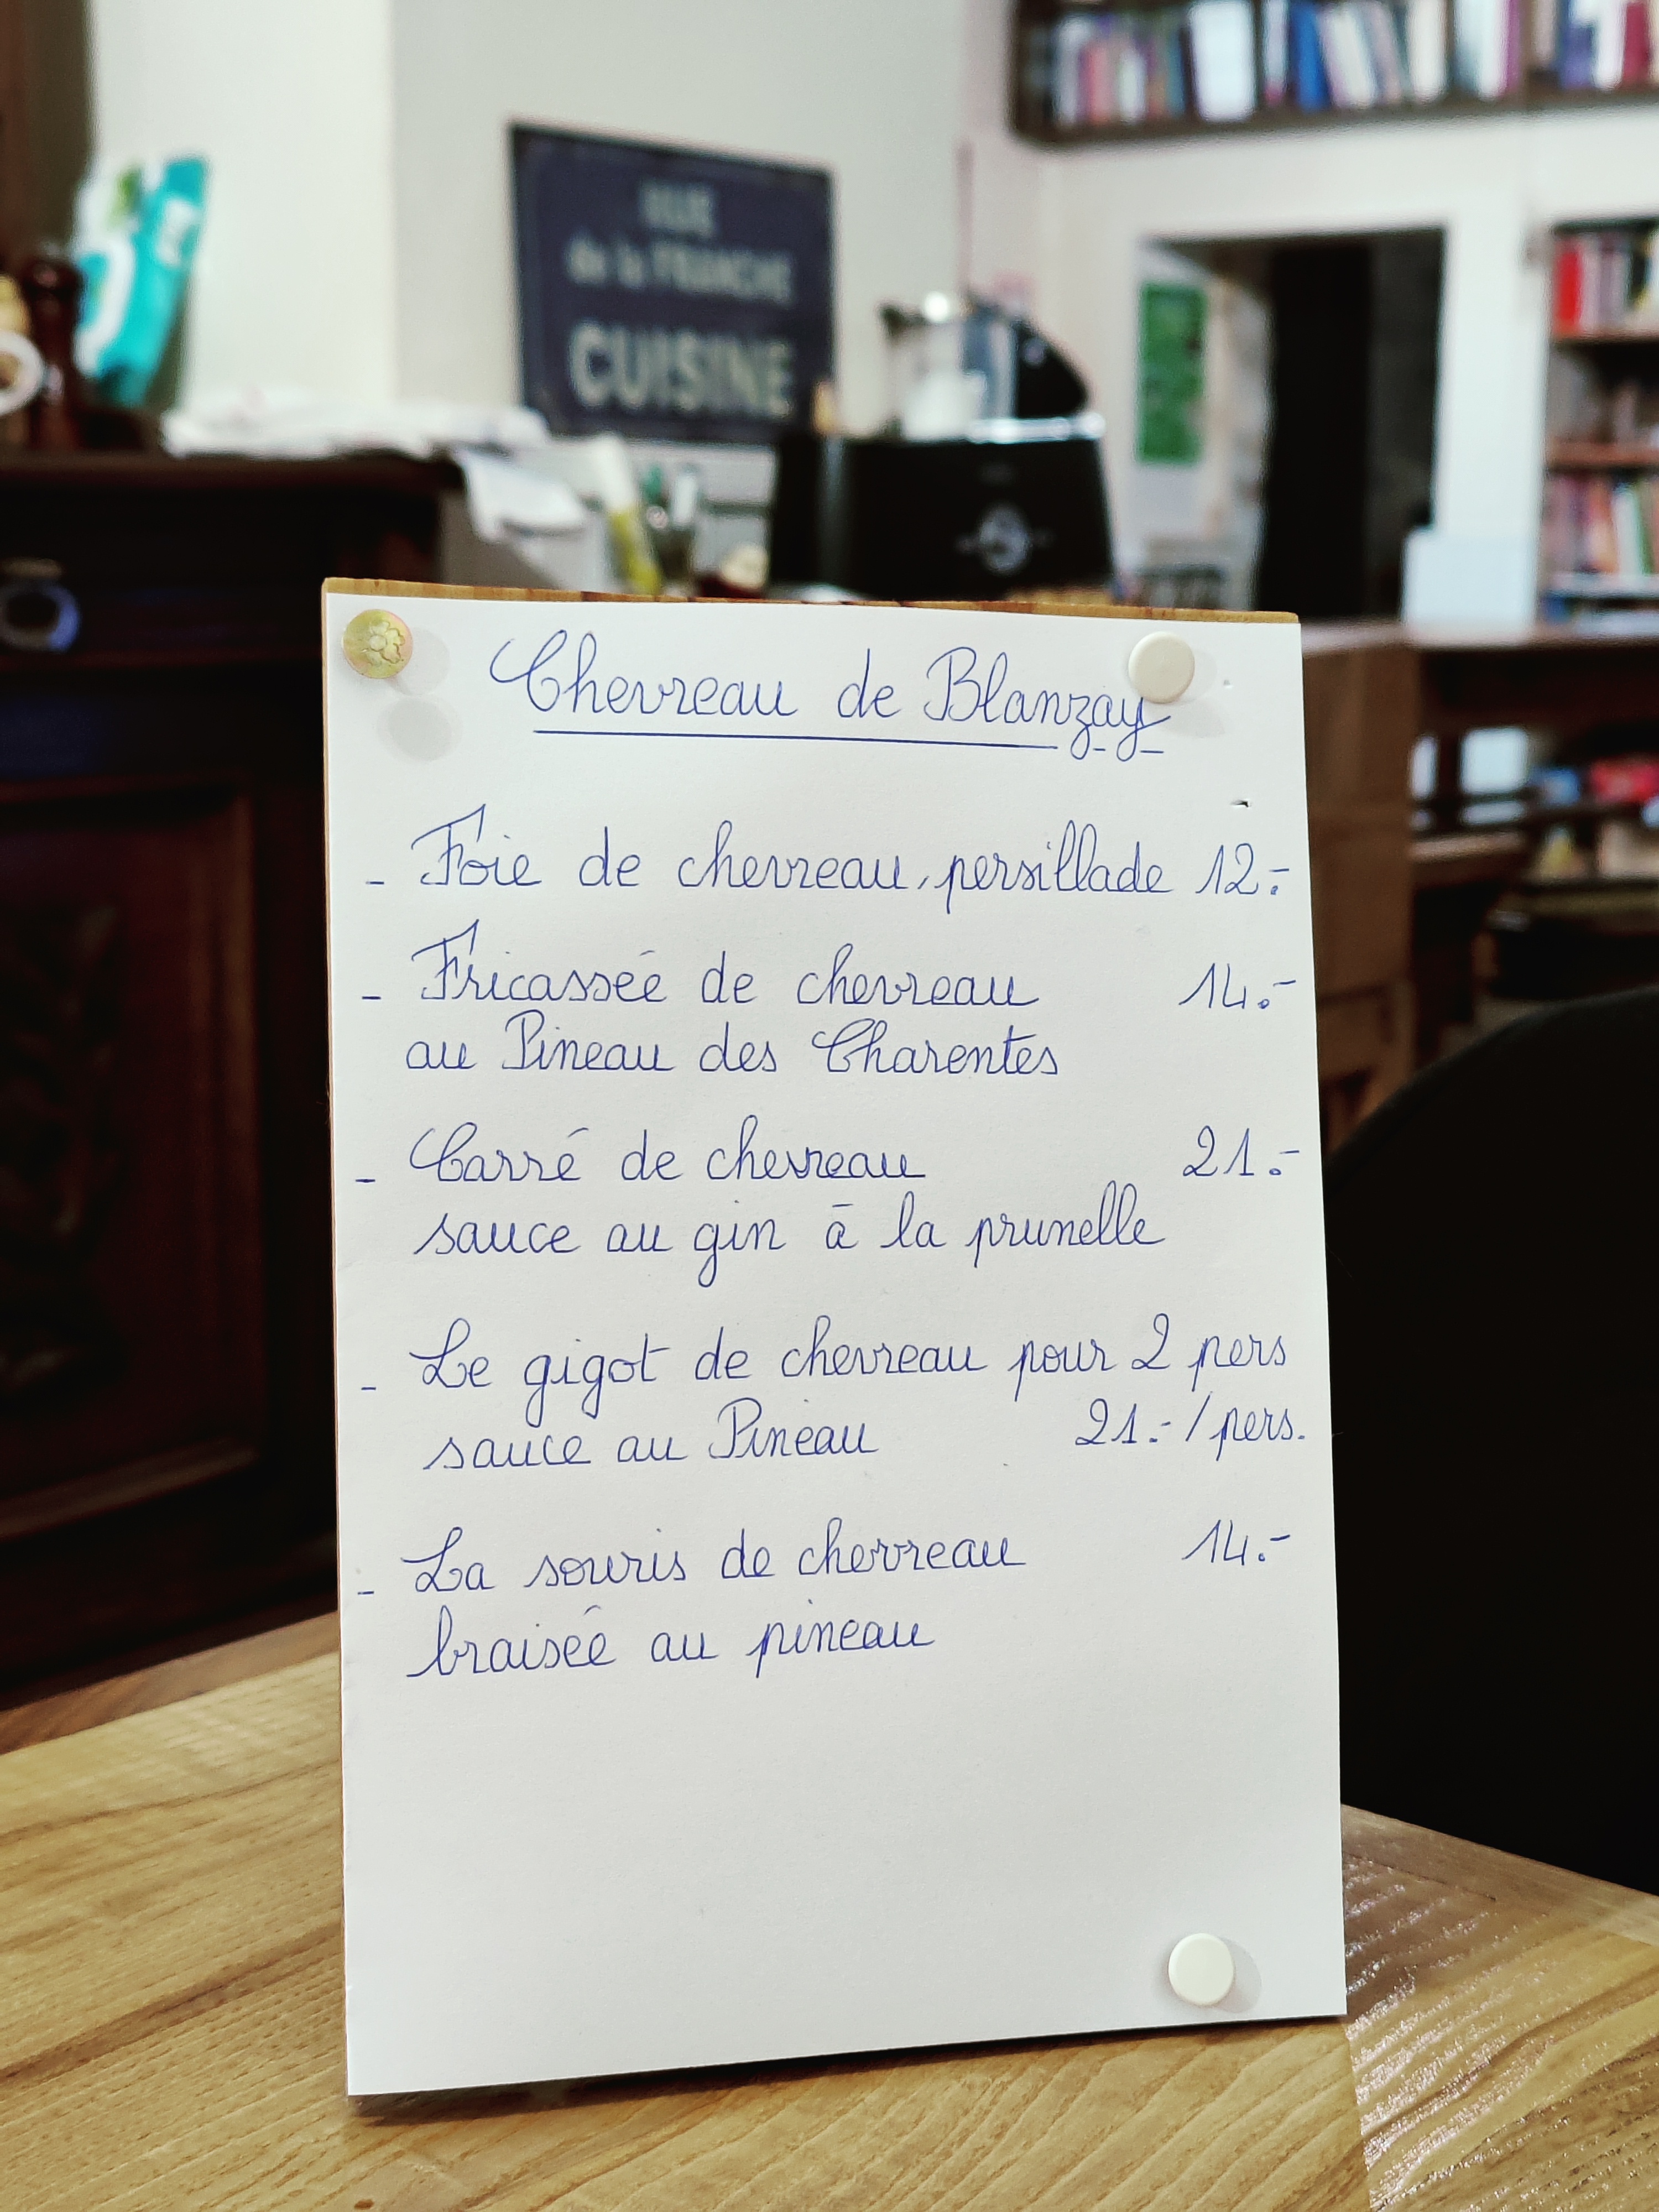 RUE
de la FRANCHE
CUISINE
Chevreau de Blanzay
- Foie de chevreau, persillade 12.-
- Fricassée de chevreau 14.-
au Pineau des Charentes
- Carré de chevreau 21.-
sauce au gin à la prunelle
- Le gigot de chevreau pour 2 pers
sauce au Pineau 21.-/pers.
- La souris de chevreau 14.-
braisée au pineau